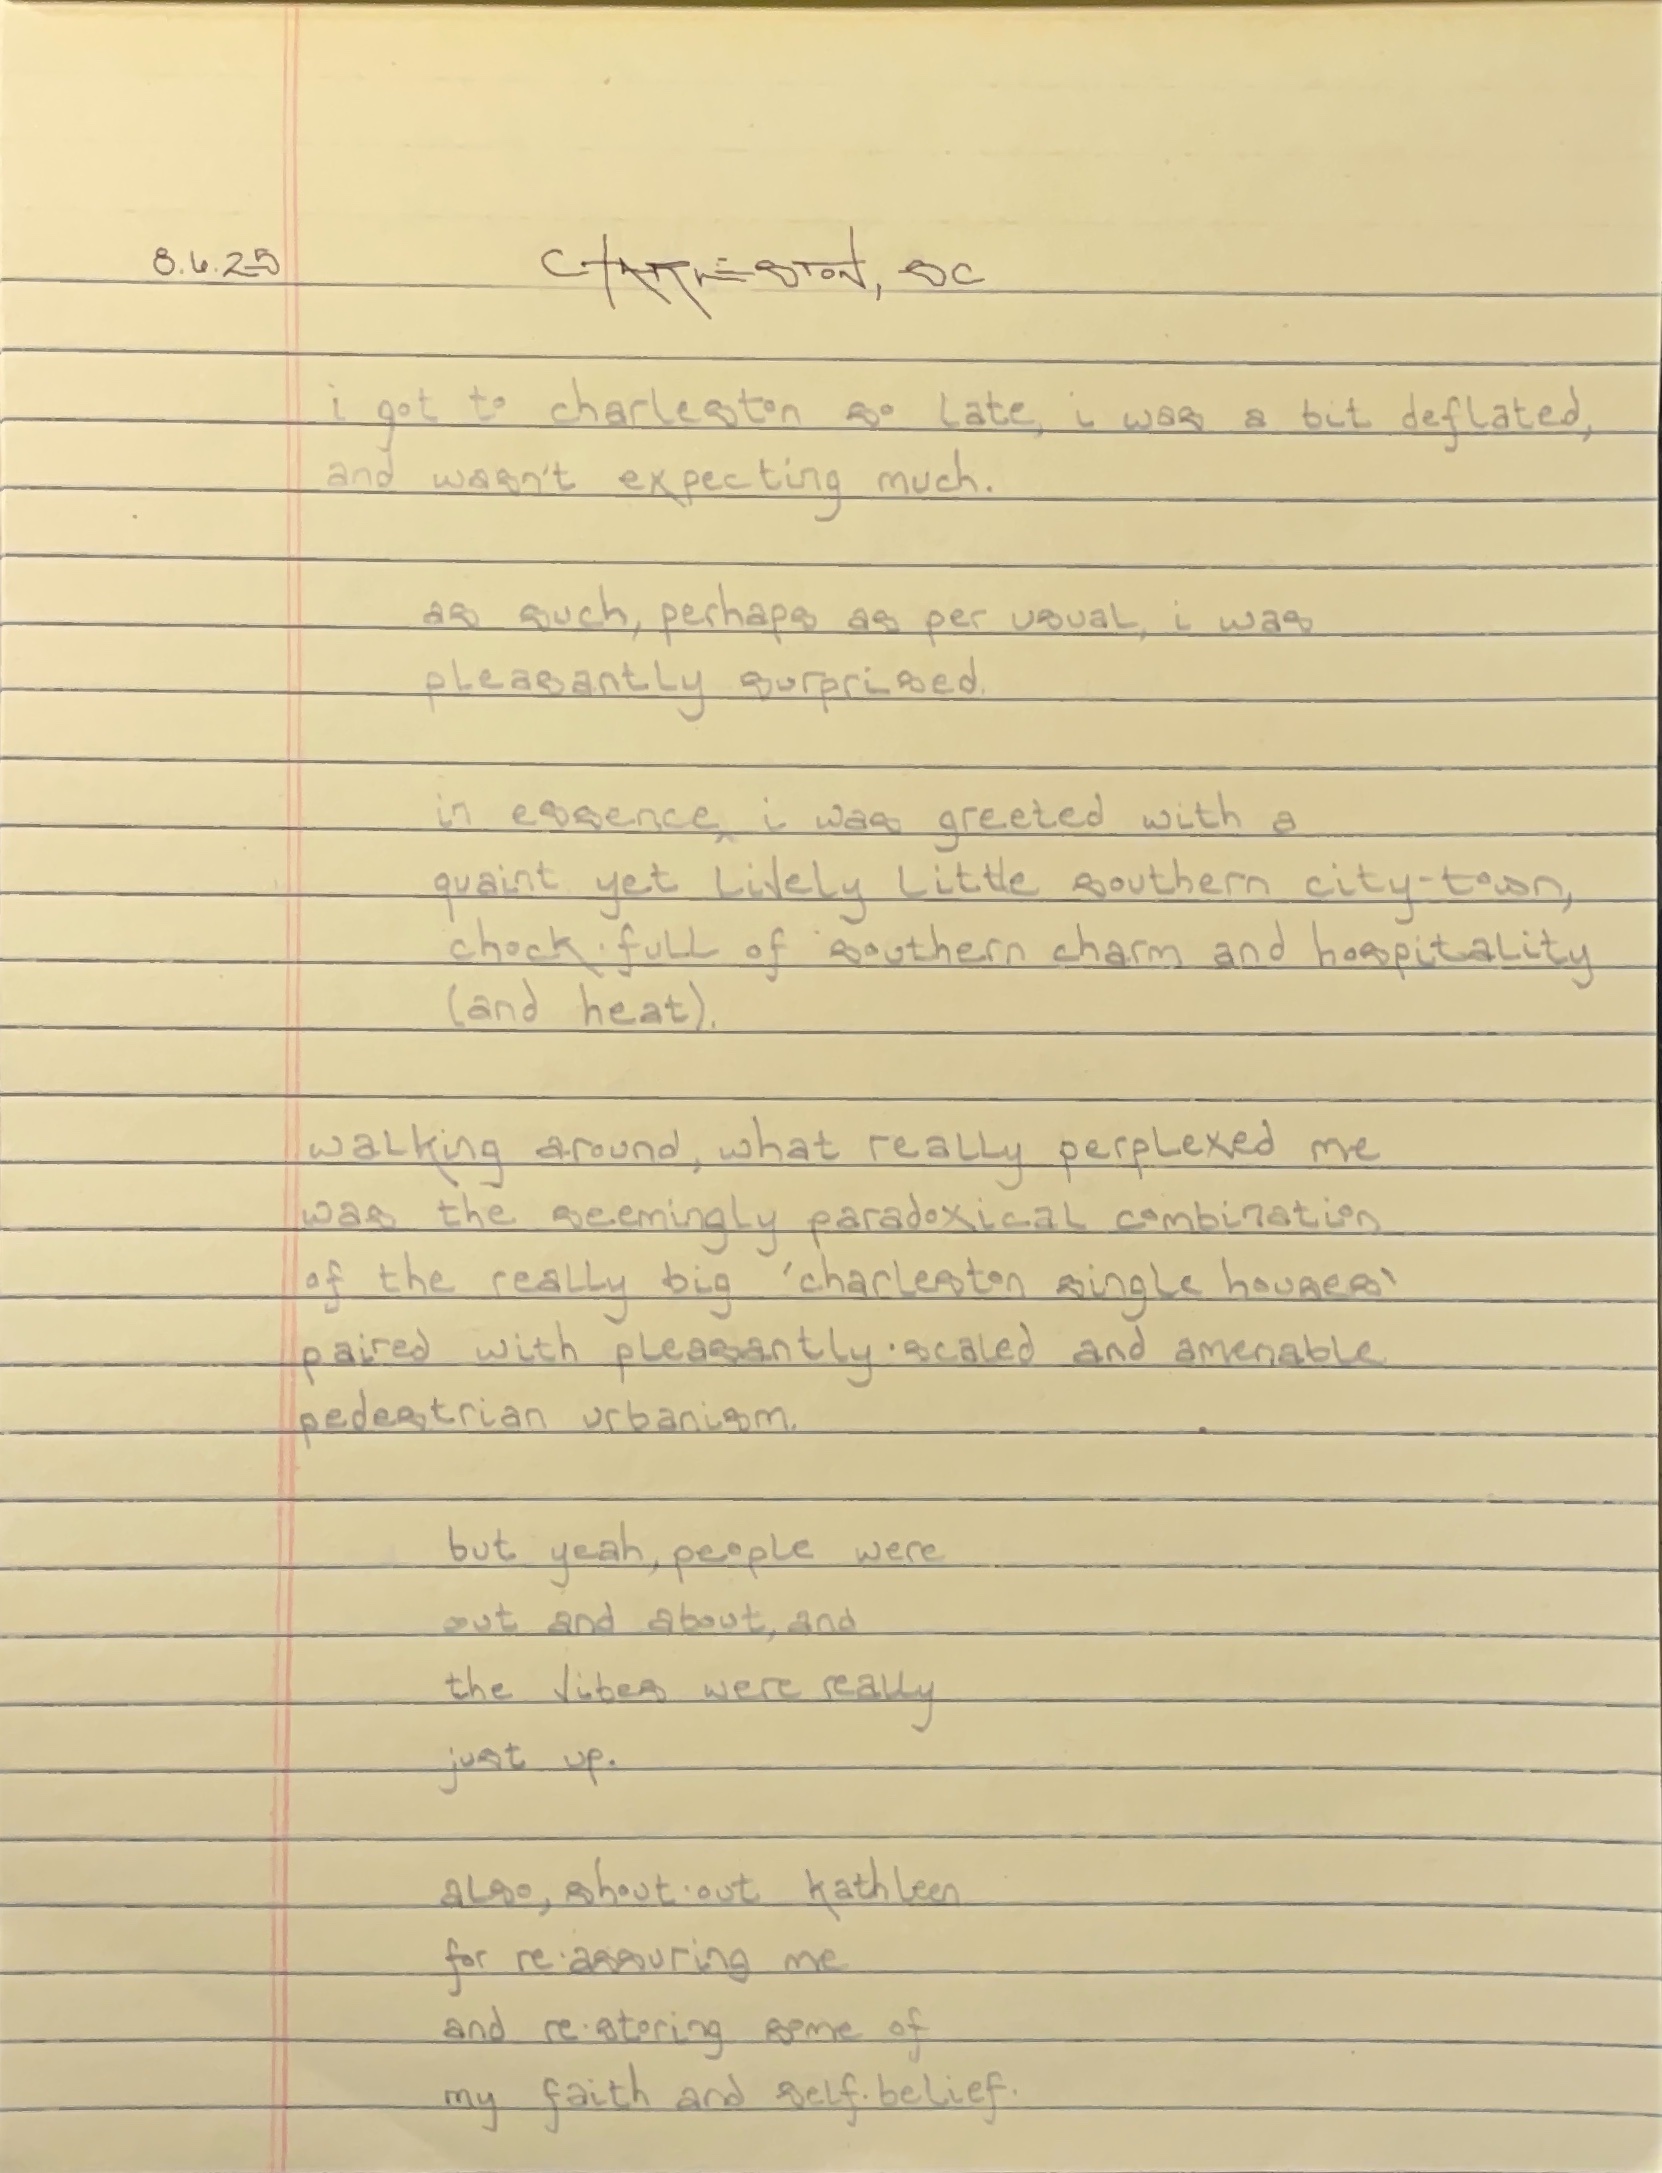 8.6.25 CHARLESTON, SC
i got to charleston so late, i was a bit deflated,
and wasn't expecting much.
as such, perhaps as per usual, i was
pleasantly surprised.
in essence, i was greeted with a
quaint yet lively little southern city-town,
chock·full of southern charm and hospitality
(and heat).
walking around, what really perplexed me
was the seemingly paradoxical combination
of the really big 'charleston single houses'
paired with pleasantly·scaled and amenable
pedestrian urbanism.
but yeah, people were
out and about, and
the vibes were really
just up.
also, shout·out kathleen
for re·assuring me
and re·storing some of
my faith and self·belief.